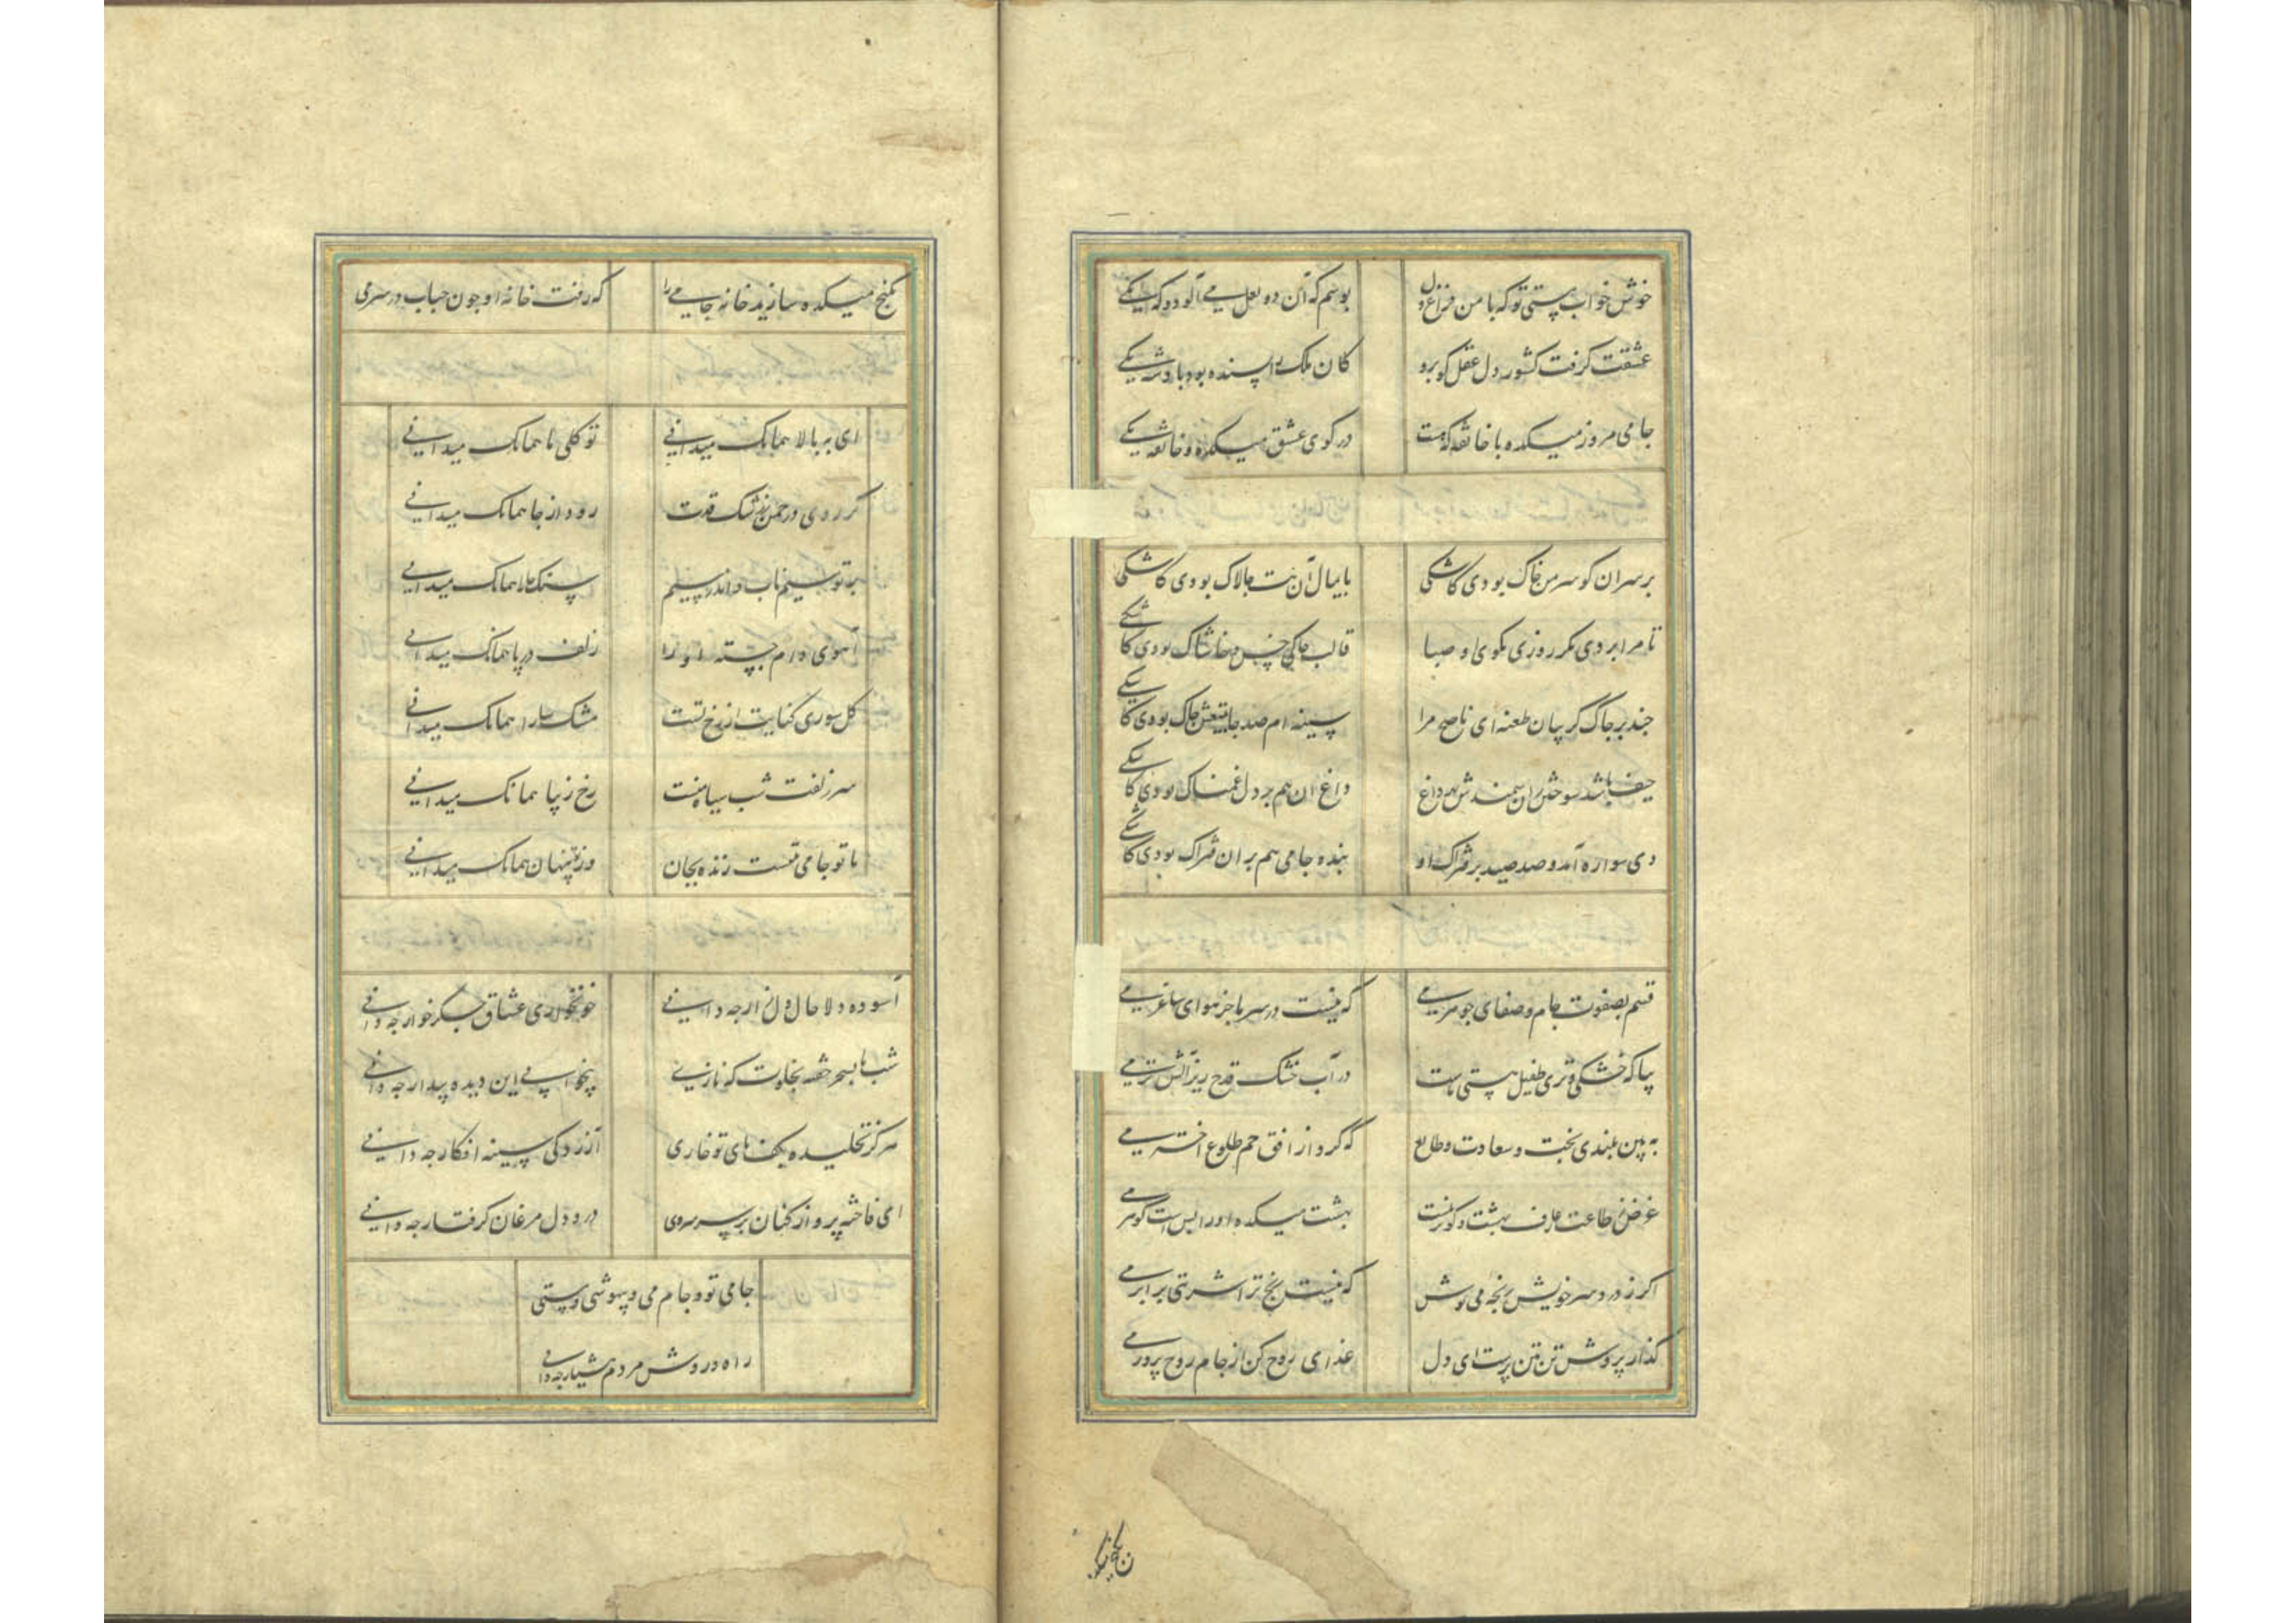 خوش خواب مستی تو که با من فراغ دل
بوسم که آن دو لعل می آلود و که یکی
عشقت گرفت کشور دل عقل کو برو
کان ملک را بسنده بود پادشه یکی
جامی مروز میکده با خانقه که هست
در کوی عشق میکده و خانقه یکی
بر سر ان کو سر من خاک بودی کاشکی
بایمال آن بت جالاک بودی کاشکی
تا مرا بردی مکر روزی بکوی او صبا
قالب خاکی خس و خاشاک بودی کاشکی
جند بر جاک کریبان طعنه ای ناصح مرا
سینه ام صد جا بتیغش جاک بودی کاشکی
حیف باشد سوختن ران سمندش بهر داغ
داغ ان هم بر دل غمناک بودی کاشکی
دی سواره آمد و صد صید بر فتراک او
بنده جامی هم بران فتراک بودی کاشکی
قسم بصفوت جام و صفای جوهر می
که نیست در سر ما جز هوای ساغر می
بیا که خشکی و تری طفیل هستی ماست
در آب خشک قدح ریز آتش تر می
به بین بلندی بخت و سعادت و طالع
که کرد از افق خم طلوع اختر می
غرض ز طاعت عارف بهشت و کوثر نیست
بهشت میکده او را بس است کوثر می
اکر ز درد سر خویش رنجه می نوش
که نیست رنج ترا شربتی برابر می
کذار پرورش تن تن پرست ای دل
غذای روح کن از جام روح پرور می
بکنج میکده
بکنج میکده سازید خانه جامی را
که رفت خانه او جون حباب در سر می
ای به بالا همانک میدانی
تو کلی یا همانک میدانی
کر روی در جمن ز رشک قدت
رود از جا همانک میدانی
بر تو سیم ناب و اندر سیم
سنک خارا همانک میدانی
آهوی دام جسته او را
زلف در پا همانک میدانی
کل سوری کنایت از رخ تست
مشک سارا همانک میدانی
سر زلفت شب سیاه منت
رخ زیبا همانک میدانی
با تو جامی تنست زنده بجان
وز تو تنها همانک میدانی
آسوده دلا حال دل زار جه دانی
خونخواری عشاق جکر خوار جه دانی
شب تا بسحر خفته بخلوت که نازی
بیخوابی این دیده بیدار جه دانی
هرکز نخلیده بکف پای تو خاری
آزردکی سینه افکار جه دانی
ای فاخته پرواز کنان بر سر سروی
درد دل مرغان کرفتار جه دانی
جامی تو و جام می و بیهوشی و مستی
راه و روش مردم هشیار جه دانی